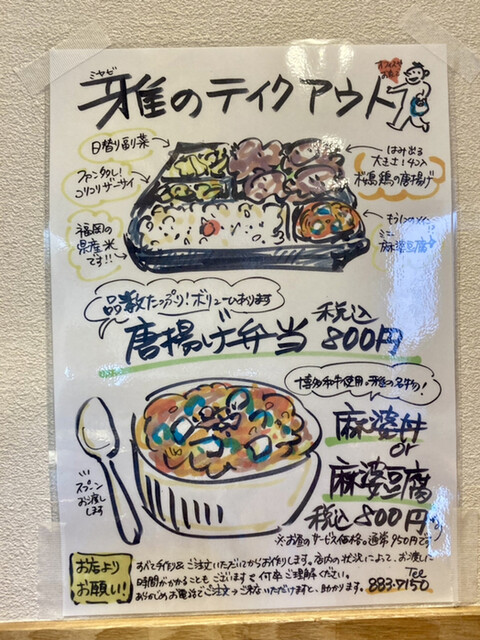 ミヤビ
雅のテイクアウト
日替り副菜
ファン多し!
コリコリザーサイ
福岡の
県産米
です!!
はみ出る
大きさ!4コ入
桜島鶏の唐揚げ
もう1つのメイン
ミニ
麻婆豆腐
品数たっぷり!ボリュームあります
唐揚げ弁当 税込800円
博多和牛使用。雅の名物!
麻婆丼
or
麻婆豆腐
税込800円
※お昼のサービス価格。通常950円です
スプーン
お渡し
します
お店より
お願い!
すべて手作り&ご注文いただいてからお作りします。店内の状況によって、お渡しに
時間がかかることもございますので何卒ご理解ください。
あらかじめお電話でご注文→ご来店いただけますと、助かります。
Tel
883-7150